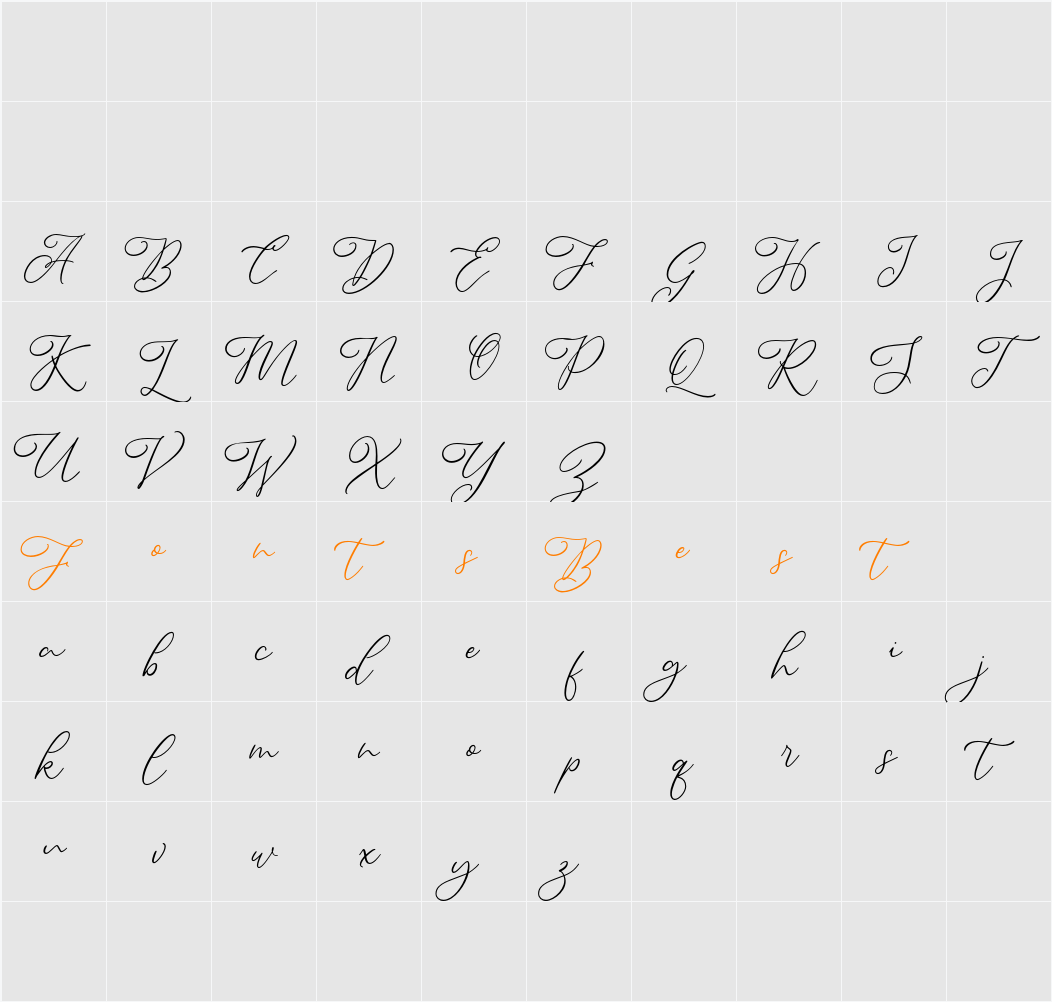 A B C D E F G H I J
K L M N O P Q R S T
U V W X Y Z
F o n t s B e s t
a b c d e f g h i j
k l m n o p q r s t
u v w x y z